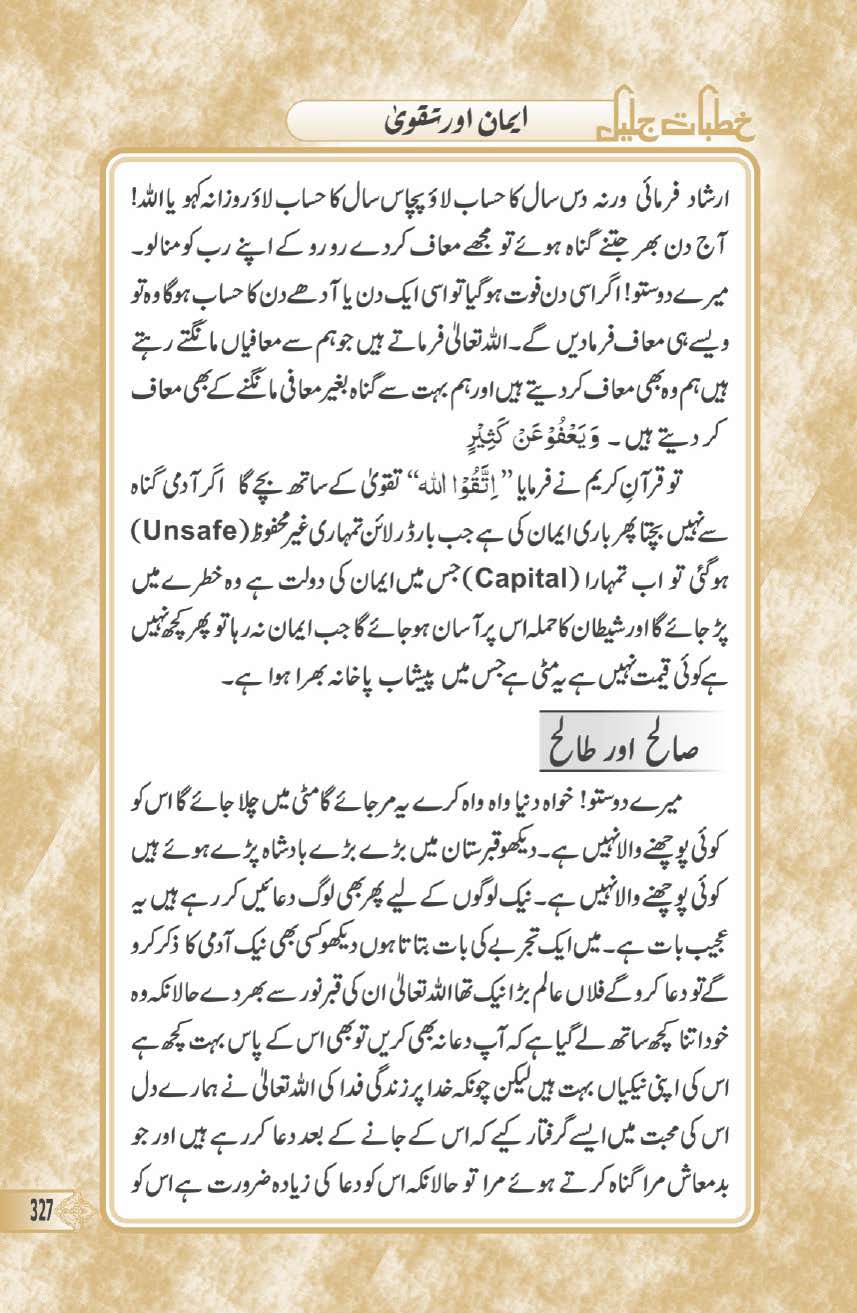 خطبات جلیل
ایمان اور تقویٰ
ارشاد فرمائی ورنہ دس سال کا حساب لاؤ پچاس سال کا حساب لاؤ روزانہ کہو یا اللہ!
آج دن بھر جتنے گناہ ہوئے تو مجھے معاف کردے رو رو کے اپنے رب کو منالو۔
میرے دوستو! اگر اسی دن فوت ہوگیا تو اسی ایک دن یا آدھے دن کا حساب ہوگا وہ تو
ویسے ہی معاف فرمادیں گے۔ اللہ تعالیٰ فرماتے ہیں جو ہم سے معافیاں مانگتے رہتے
ہیں ہم وہ بھی معاف کردیتے ہیں اور ہم بہت سے گناہ بغیر معافی مانگنے کے بھی معاف
کر دیتے ہیں ۔ وَيَعْفُوْ عَنْ كَثِيْرٍ
تو قرآنِ کریم نے فرمایا ”اِتَّقُوْا الله“ تقویٰ کے ساتھ بچے گا اگر آدمی گناہ
سے نہیں بچتا پھر باری ایمان کی ہے جب بارڈر لائن تمہاری غیر محفوظ (Unsafe)
ہوگئی تو اب تمہارا (Capital) جس میں ایمان کی دولت ہے وہ خطرے میں
پڑ جائے گا اور شیطان کا حملہ اس پر آسان ہوجائے گا جب ایمان نہ رہا تو پھر کچھ نہیں
ہے کوئی قیمت نہیں ہے یہ مٹی ہے جس میں پیشاب پاخانہ بھرا ہوا ہے۔
صالح اور طالح
میرے دوستو! خواہ دنیا واہ واہ کرے یہ مرجائے گا مٹی میں چلا جائے گا اس کو
کوئی پوچھنے والا نہیں ہے۔ دیکھو قبرستان میں بڑے بڑے بادشاہ پڑے ہوئے ہیں
کوئی پوچھنے والا نہیں ہے۔ نیک لوگوں کے لیے پھر بھی لوگ دعائیں کر رہے ہیں یہ
عجیب بات ہے۔ میں ایک تجربے کی بات بتاتا ہوں دیکھو کسی بھی نیک آدمی کا ذکر کرو
گے تو دعا کرو گے فلاں عالم بڑا نیک تھا اللہ تعالیٰ ان کی قبر نور سے بھر دے حالانکہ وہ
خود اتنا کچھ ساتھ لے گیا ہے کہ آپ دعا نہ بھی کریں تو بھی اس کے پاس بہت کچھ ہے
اس کی اپنی نیکیاں بہت ہیں لیکن چونکہ خدا پر زندگی فدا کی اللہ تعالیٰ نے ہمارے دل
اس کی محبت میں ایسے گرفتار کیے کہ اس کے جانے کے بعد دعا کر رہے ہیں اور جو
بدمعاش مرا گناہ کرتے ہوئے مرا تو حالانکہ اس کو دعا کی زیادہ ضرورت ہے اس کو
327